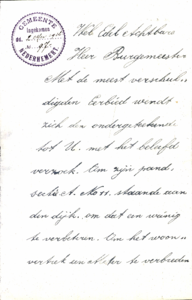 GEMEENTE
Ingekomen
HEDERNEMERT
Wel Edel achtbare
Heer Burgemeester
Met de meest verschul-
digden Eerbied wendt
zich den ondergeteekende
tot U. met het beleefd
verzoek. Om zijn pand,
sectie A. No staande aan
den dijk, om dat een weinig
te verbeteren. Om het woon-
vertrek een Meter te verbreeden